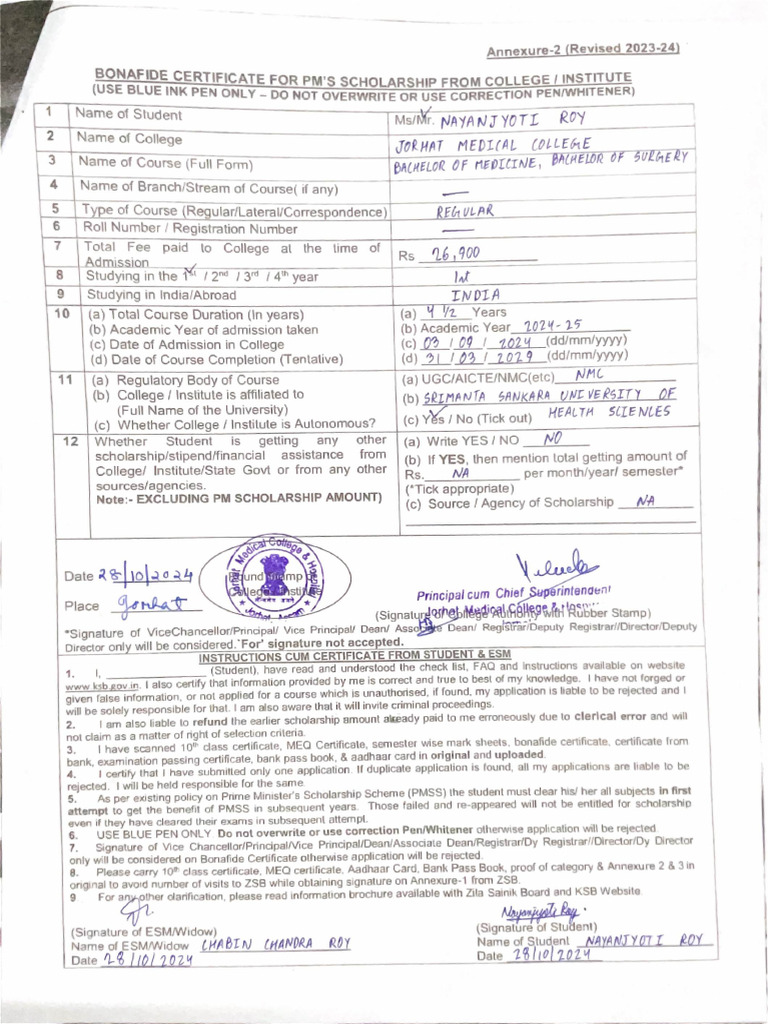 Annexure-2 (Revised 2023-24)
BONAFIDE CERTIFICATE FOR PM'S SCHOLARSHIP FROM COLLEGE / INSTITUTE
(USE BLUE INK PEN ONLY – DO NOT OVERWRITE OR USE CORRECTION PEN/WHITENER)
1 Name of Student Ms/Mr. NAYANJYOTI ROY
2 Name of College JORHAT MEDICAL COLLEGE
3 Name of Course (Full Form) BACHELOR OF MEDICINE, BACHELOR OF SURGERY
4 Name of Branch/Stream of Course( if any) —
5 Type of Course (Regular/Lateral/Correspondence) REGULAR
6 Roll Number / Registration Number —
7 Total Fee paid to College at the time of Admission Rs 26,900
8 Studying in the 1st / 2nd / 3rd / 4th year 1st
9 Studying in India/Abroad INDIA
10 (a) Total Course Duration (In years) (a) 4 1/2 Years
(b) Academic Year of admission taken (b) Academic Year 2024-25
(c) Date of Admission in College (c) 03 / 09 / 2024 (dd/mm/yyyy)
(d) Date of Course Completion (Tentative) (d) 31 / 03 / 2029 (dd/mm/yyyy)
11 (a) Regulatory Body of Course (a) UGC/AICTE/NMC(etc) NMC
(b) College / Institute is affiliated to (b) SRIMANTA SANKARA UNIVERSITY OF
(Full Name of the University) HEALTH SCIENCES
(c) Whether College / Institute is Autonomous? (c) Yes / No (Tick out)
12 Whether Student is getting any other (a) Write YES / NO NO
scholarship/stipend/financial assistance from (b) If YES, then mention total getting amount of
College/ Institute/State Govt or from any other Rs. NA per month/year/ semester*
sources/agencies. (*Tick appropriate)
Note:- EXCLUDING PM SCHOLARSHIP AMOUNT) (c) Source / Agency of Scholarship NA
Date 28/10/2024
Place Jorhat
Round Stamp of
College/Institute
Jorhat Medical College & Hospital
Jorhat, Assam
Principal cum Chief Superintendent
Jorhat Medical College & Hos
(Signature of College Authority with Rubber Stamp)
*Signature of ViceChancellor/Principal/ Vice Principal/ Dean/ Associate Dean/ Registrar/Deputy Registrar//Director/Deputy
Director only will be considered. 'For' signature not accepted.
INSTRUCTIONS CUM CERTIFICATE FROM STUDENT & ESM
1. I, (Student), have read and understood the check list, FAQ and instructions available on website
www.ksb.gov.in. I also certify that information provided by me is correct and true to best of my knowledge. I have not forged or
given false information, or not applied for a course which is unauthorised, if found, my application is liable to be rejected and I
will be solely responsible for that. I am also aware that it will invite criminal proceedings.
2. I am also liable to refund the earlier scholarship amount already paid to me erroneously due to clerical error and will
not claim as a matter of right of selection criteria.
3. I have scanned 10th class certificate, MEQ Certificate, semester wise mark sheets, bonafide certificate, certificate from
bank, examination passing certificate, bank pass book, & aadhaar card in original and uploaded.
4. I certify that I have submitted only one application. If duplicate application is found, all my applications are liable to be
rejected. I will be held responsible for the same.
5. As per existing policy on Prime Minister's Scholarship Scheme (PMSS) the student must clear his/ her all subjects in first
attempt to get the benefit of PMSS in subsequent years. Those failed and re-appeared will not be entitled for scholarship
even if they have cleared their exams in subsequent attempt.
6. USE BLUE PEN ONLY Do not overwrite or use correction Pen/Whitener otherwise application will be rejected.
7. Signature of Vice Chancellor/Principal/Vice Principal/Dean/Associate Dean/Registrar/Dy Registrar//Director/Dy Director
only will be considered on Bonafide Certificate otherwise application will be rejected.
8. Please carry 10th class certificate, MEQ certificate, Aadhaar Card, Bank Pass Book, proof of category & Annexure 2 & 3 in
original to avoid number of visits to ZSB while obtaining signature on Annexure-1 from ZSB.
9 For any other clarification, please read information brochure available with Zila Sainik Board and KSB Website.
Nayanjyoti Roy
(Signature of ESM/Widow) (Signature of Student)
Name of ESM/Widow CHABIN CHANDRA ROY Name of Student NAYANJYOTI ROY
Date 28/10/2024 Date 28/10/2024